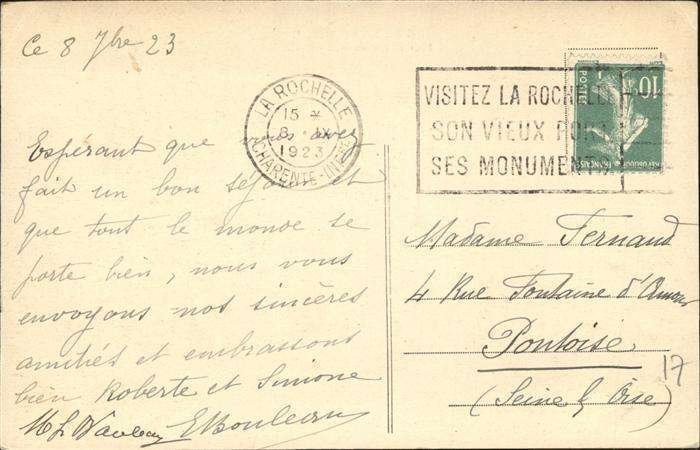 Ce 8 7bre 23
LA ROCHELLE
15 *
8 · IX
1923
CHARENTE-INFRE
VISITEZ LA ROCHELLE
SON VIEUX PORT
SES MONUMENTS
10
POSTES
Espérant que vous avez
fait un bon séjour et
que tout le monde se
porte bien, nous vous
envoyons nos sincères
amitiés et embrassons
bien Roberte et Simone
Madame Fernand
4 Rue Fontaine d'Amour
Pontoise
(Seine & Oise)
17